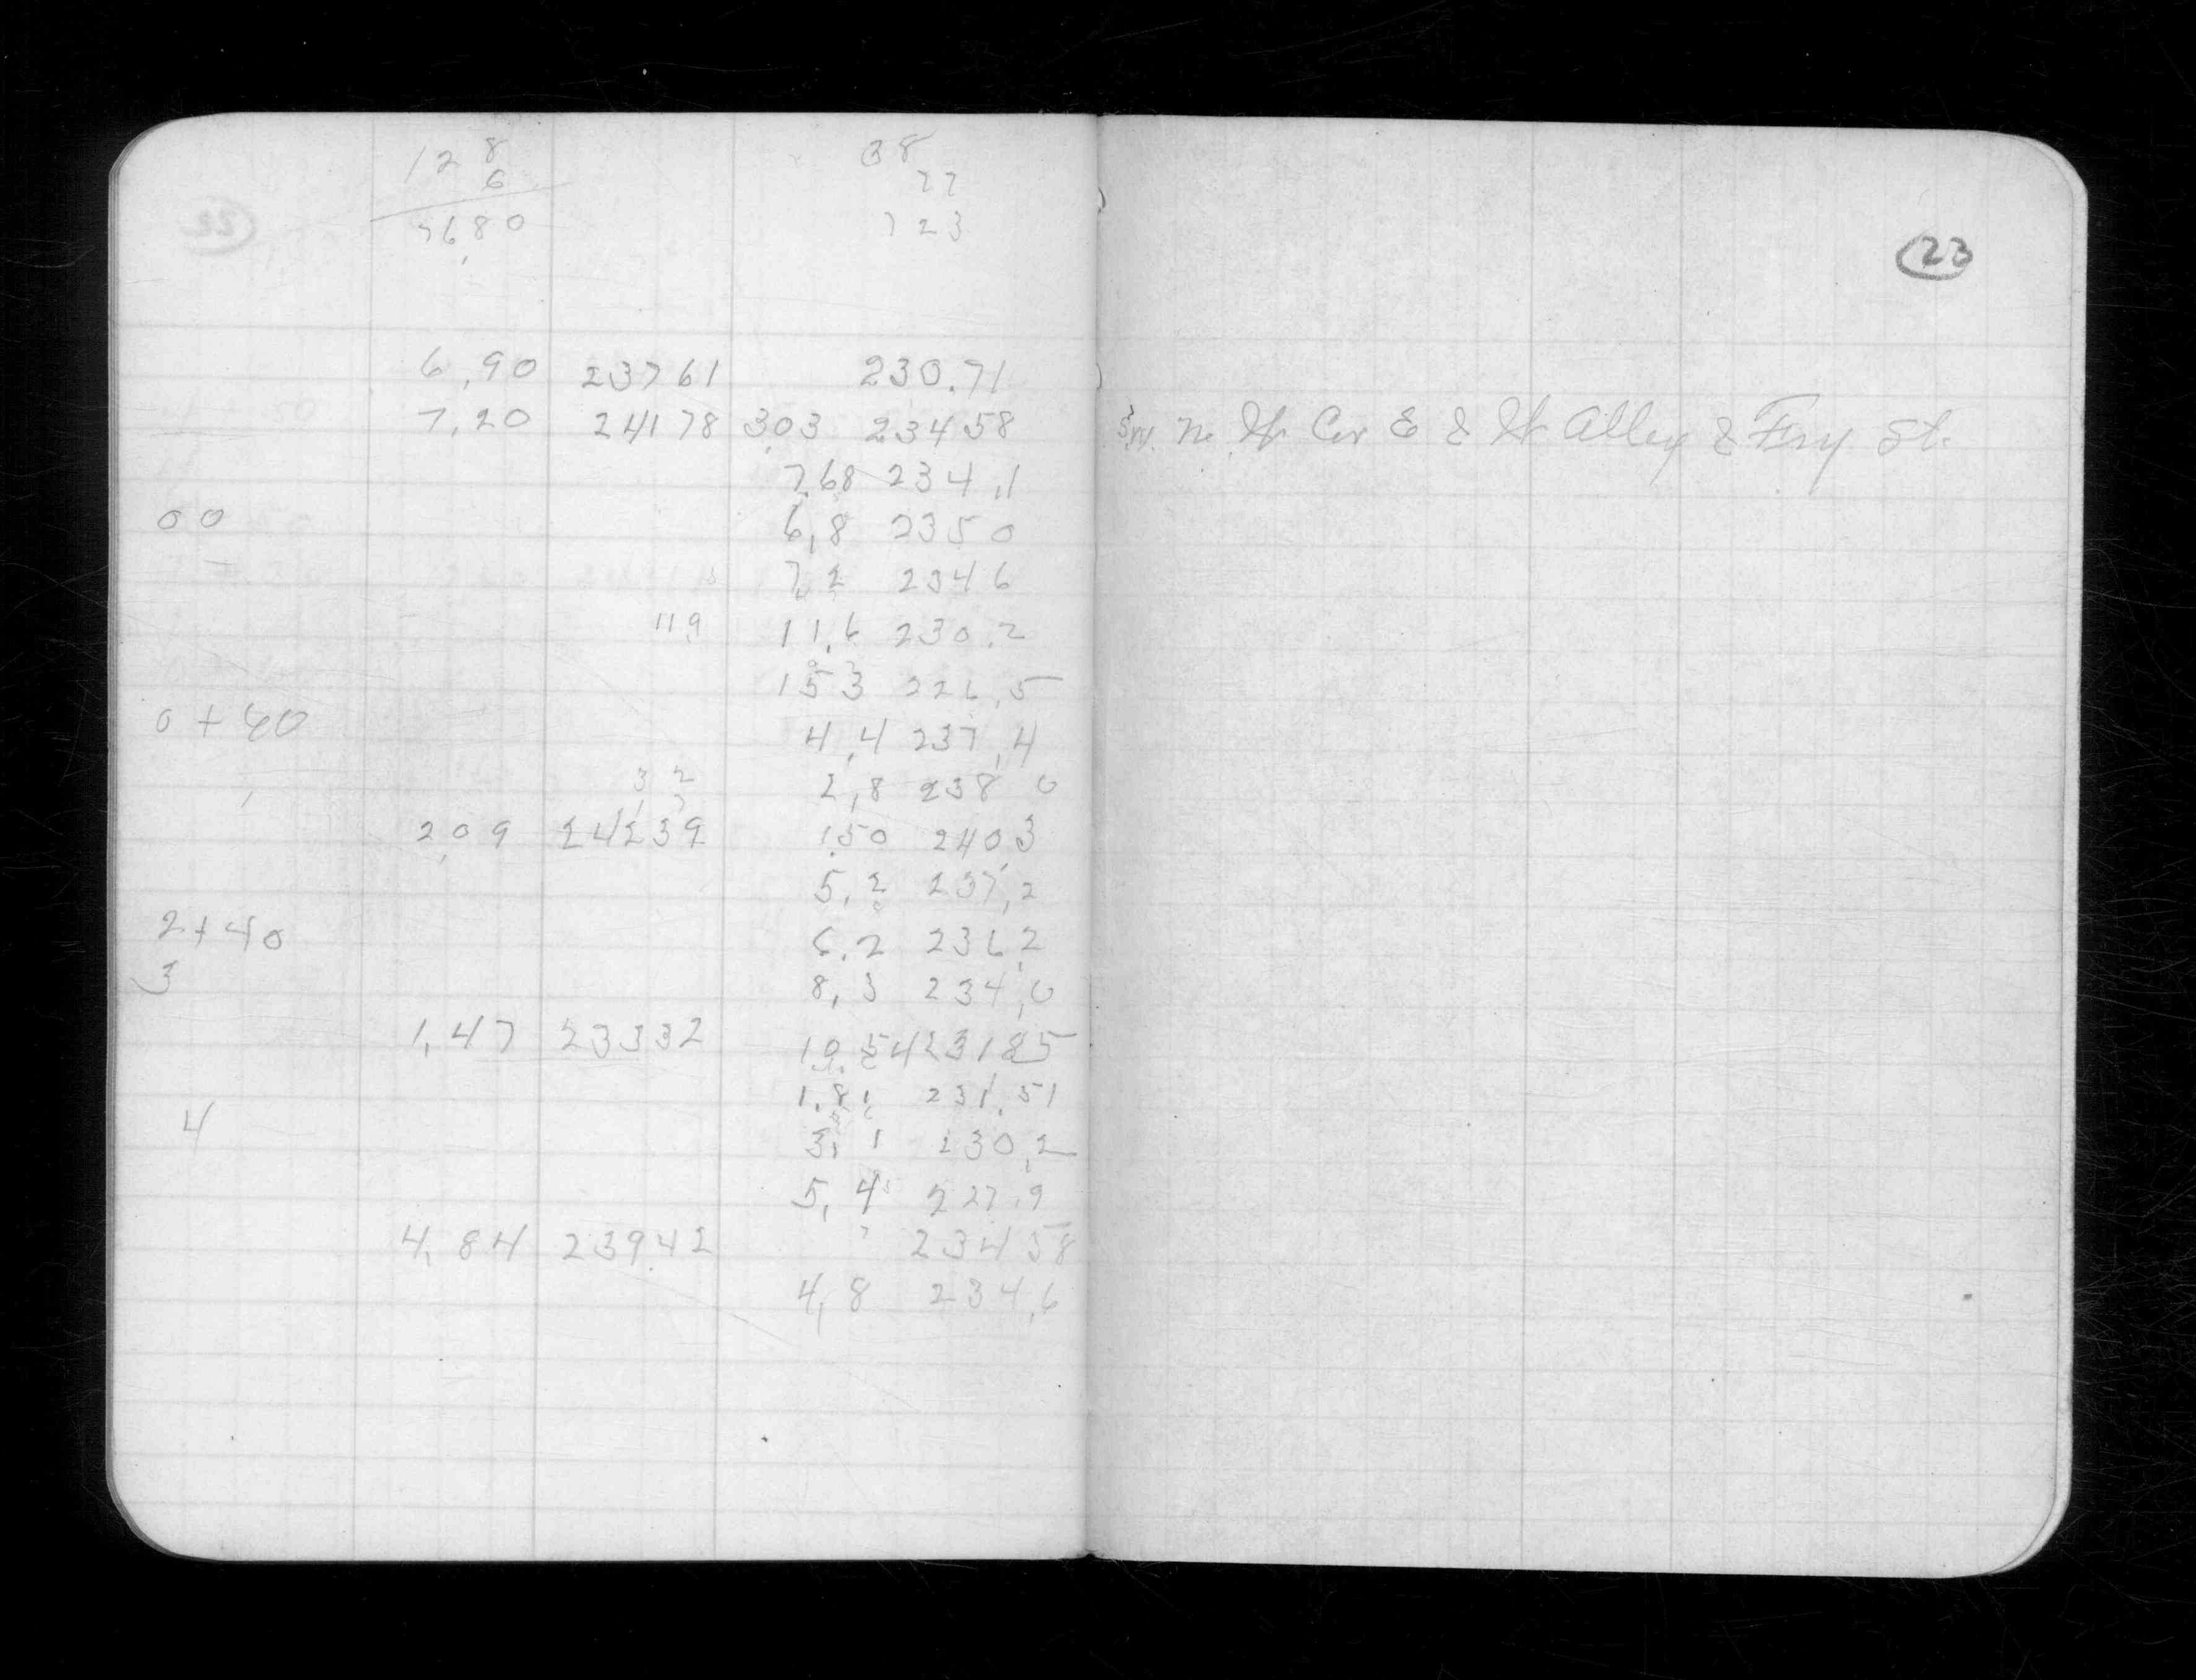 128 38
6 77
7680 723
23
6,90 23761 230.71
7,20 24178 3.03 23458
N. W. Cor E & W Alley & Fry St.
7.68 234.1
00 6,8 2350
7,2 2346
11.9 11,6 230.2
153 226.5
0+40 4,4 237,4
3 2 2,8 238 0
2,09 24239 1.50 240.3
5,2 237,2
2+40 6.2 236.2
3 8,3 234,0
1,47 23332 23185
1,81 231.51
4 3,1 230,2
5,4 227.9
4,84 239.42 23458
4,8 234,6